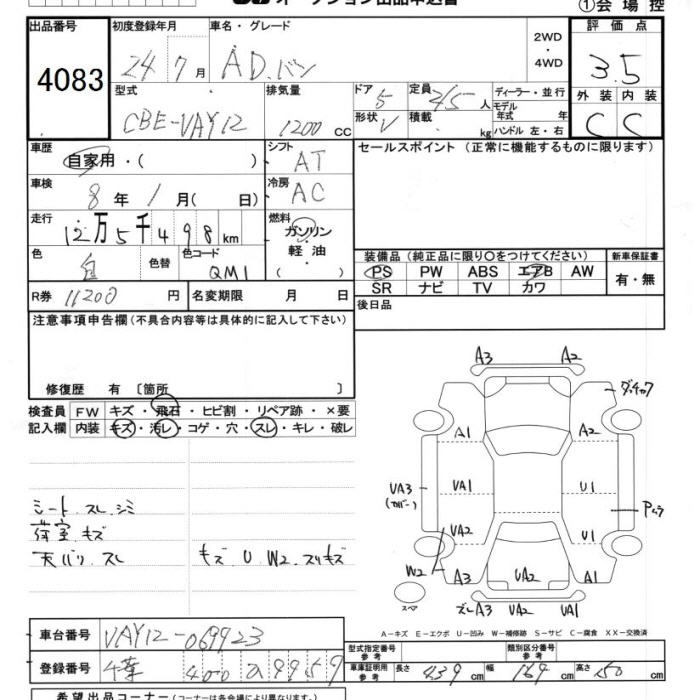 ①会場控
出品番号 初度登録年月 車名・グレード 2WD・4WD 評価点
4083 24 7月 AD.バン 3.5
型式 排気量 ドア 定員 ディーラー・並行 外装 内装
CBE-VAY12 1200 CC 5 2/5人 モデル年式 年 C C
形状 V 積載 kg ハンドル 左・右
車歴 シフト セールスポイント (正常に機能するものに限ります)
自家用・( ) AT
車検 冷房
8年1月( 日) AC
走行 燃料
12万5千498km ガソリン・軽油( )
色 色替 色コード 装備品 (純正品に限り○をつけてください) 新車保証書
白 QM1 PS PW ABS エアB AW 有・無
SR ナビ TV カワ
R券 11200円 名変期限 月 日 後日品
注意事項申告欄 (不具合内容等は具体的に記入して下さい)
修復歴 有 〔箇所 〕
検査員 FW キズ・飛石・ヒビ割・リペア跡・×要
記入欄 内装 キズ・汚レ・コゲ・穴・スレ・キレ・破レ
シート スレ シミ
荷室 キズ
天バリ スレ キズ U W2 スリキズ
A3 A2
A1 A2
UA3 UA1 U1
UA2 U1
W2 A3 UA2 A1
スペア A3 UA2 UA1
A－キズ E－エクボ U－凹み W－補修跡 S－サビ C－腐食 XX－交換済
車台番号 VAY12-069923
型式指定番号 参考 類別区分番号 参考
登録番号 400 9959
車庫証明用 参考 長さ 439cm 幅 169cm 高さ 150cm
希望出品コーナー (コーナーは各会場により異なります。)